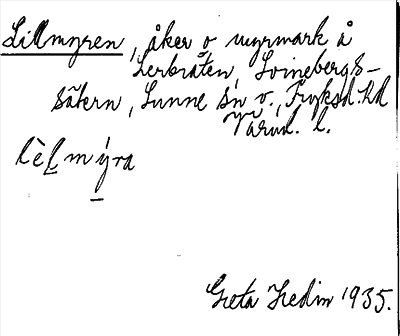 Lillmyren, åker o myrmark å
Lerbråten, Svineberg s-
sätern, Sunne sn o., Fryksd. hd
Värml. l.
lèl mýra
Greta Hedin 1935.